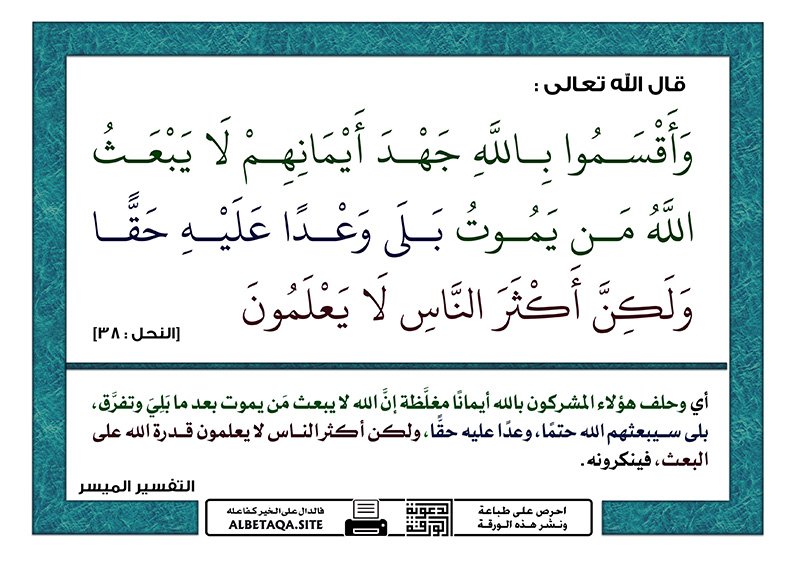 قال الله تعالى :
وَأَقْسَمُوا بِاللَّهِ جَهْدَ أَيْمَانِهِمْ لَا يَبْعَثُ
اللَّهُ مَن يَمُوتُ بَلَى وَعْدًا عَلَيْهِ حَقًّا
وَلَكِنَّ أَكْثَرَ النَّاسِ لَا يَعْلَمُونَ
[النحل : ٣٨]
أي وحلف هؤلاء المشركون بالله أيمانًا مغلَّظة إنَّ الله لا يبعث مَن يموت بعد ما بَلِيَ وتفرَّق،
بلى سيبعثهم الله حتمًا، وعدًا عليه حقًّا، ولكن أكثر الناس لا يعلمون قدرة الله على
البعث، فينكرونه.
التفسير الميسر
احرص على طباعة
ونشر هذه الورقة
الورقة
الدعوية
فالدال على الخير كفاعله
ALBETAQA.SITE